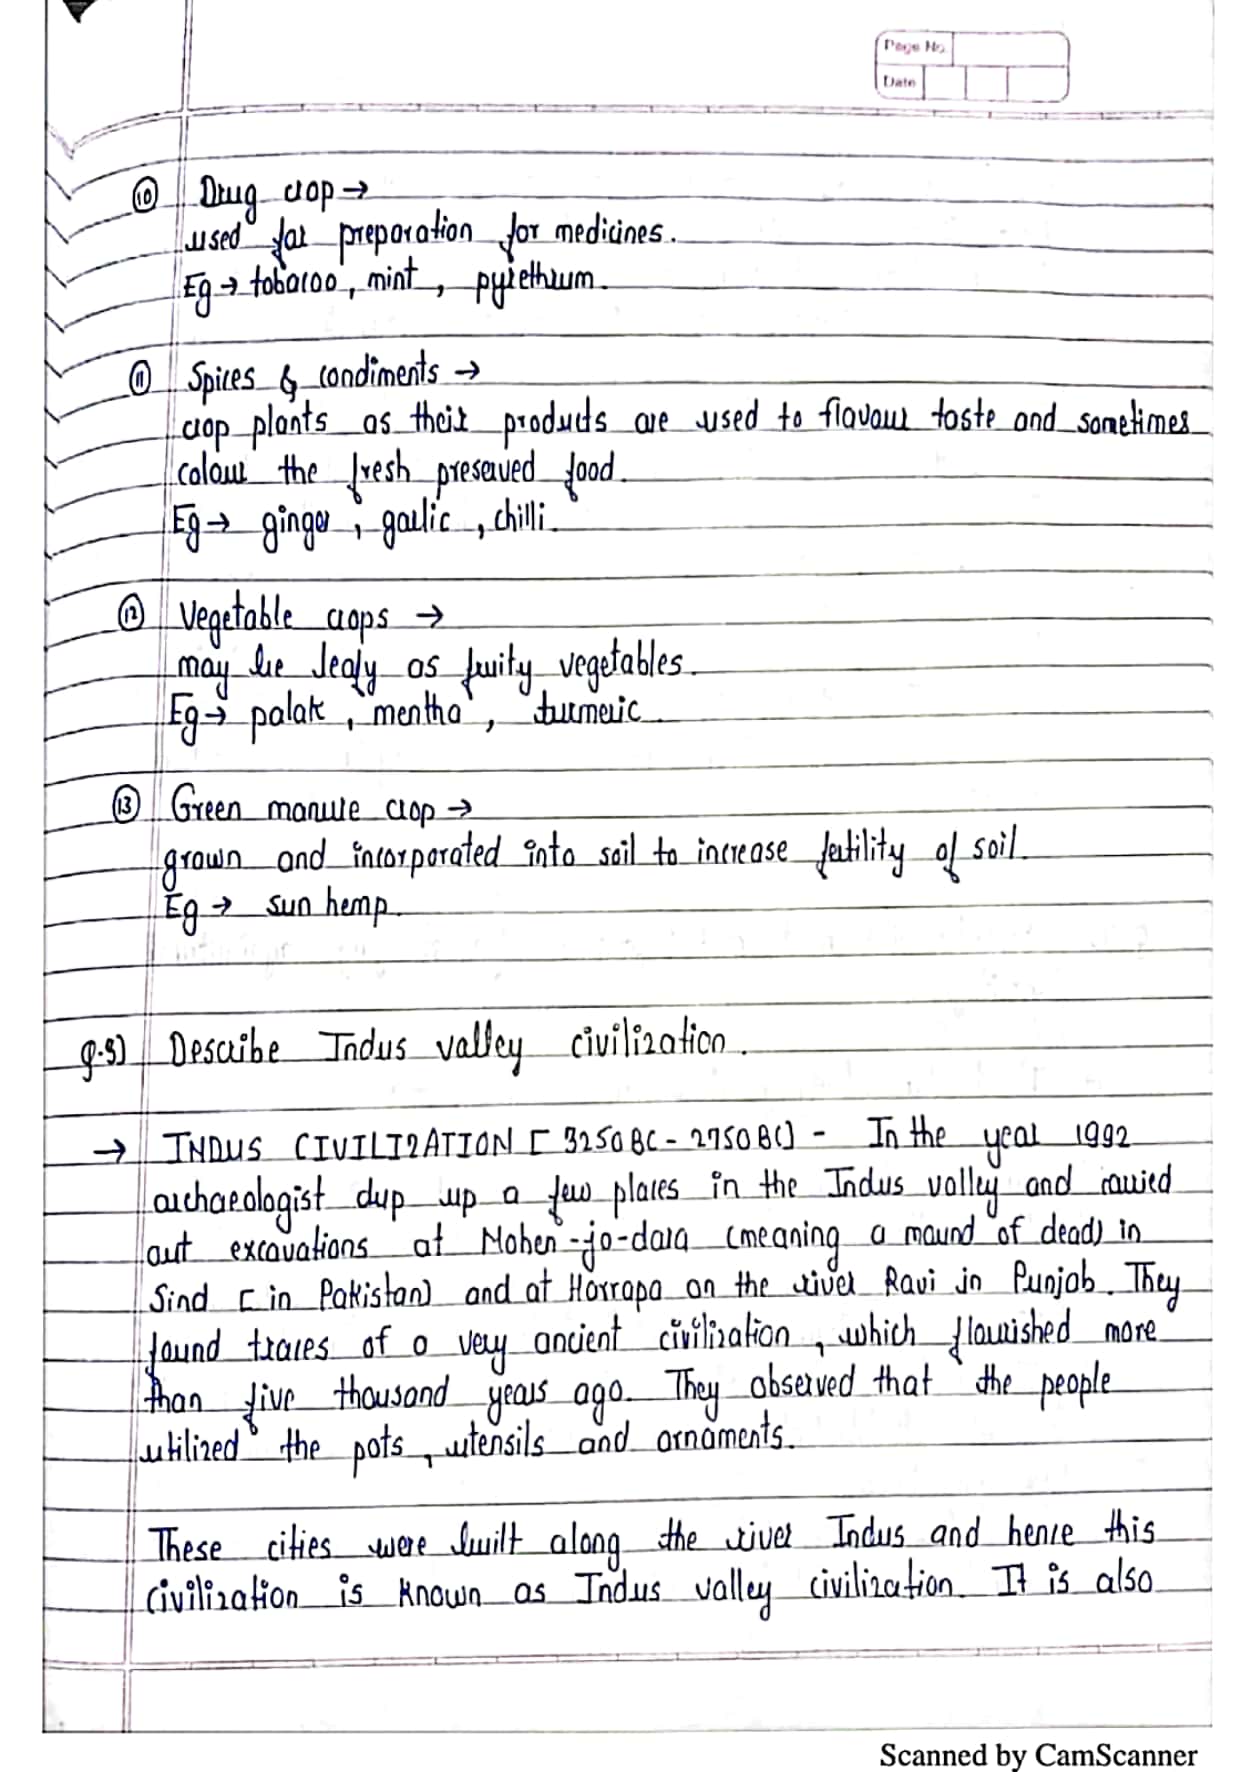 Page No.
Date
⑩ Drug crop →
used for preparation for medicines.
Eg → tobacoo, mint, pyrethrum.
⑪ Spices & condiments →
crop plants as their products are used to flavour taste and sometimes
colour the fresh preserved food.
Eg → ginger, garlic, chilli.
⑫ Vegetable crops →
may be leafy as fruity vegetables.
Eg → palak, mentha, turmeric.
⑬ Green manure crop →
grown and incorporated into soil to increase fertility of soil.
Eg → sun hemp.
Q.3) Describe Indus valley civilization.
→ INDUS CIVILIZATION [3250BC - 2750BC] - In the year 1992
archaeologist dup up a few places in the Indus valley and carried
out excavations at Mohen-jo-dara (meaning a mound of dead) in
Sind [in Pakistan) and at Harrapa on the river Ravi in Punjab. They
found traces of a very ancient civilization, which flourished more
than five thousand years ago. They observed that the people
utilized the pots, utensils and ornaments.
These cities were built along the river Indus and hence this
civilization is known as Indus valley civilization. It is also
Scanned by CamScanner